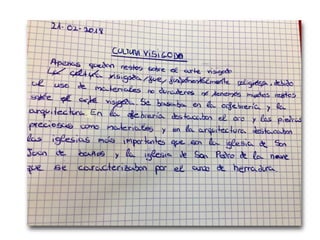 21-02-2018
CULTURA VISIGODA
Apenas quedan restos sobre el arte visigodo
La cultura visigoda, fue fundamentalmente religiosa, debido
al uso de materiales no duraderos no tenemos muchos restos
sobre el arte visigodo. Se basaba en la orfebrería y la
arquitectura. En la orfebrería destacaban el oro y las piedras
preciosas como materiales y en la arquitectura destacaban
las iglesias más importantes que son la iglesia de San
Juan de baños y la iglesia de San Pedro de la nave
que se caracterizaban por el arco de herradura.